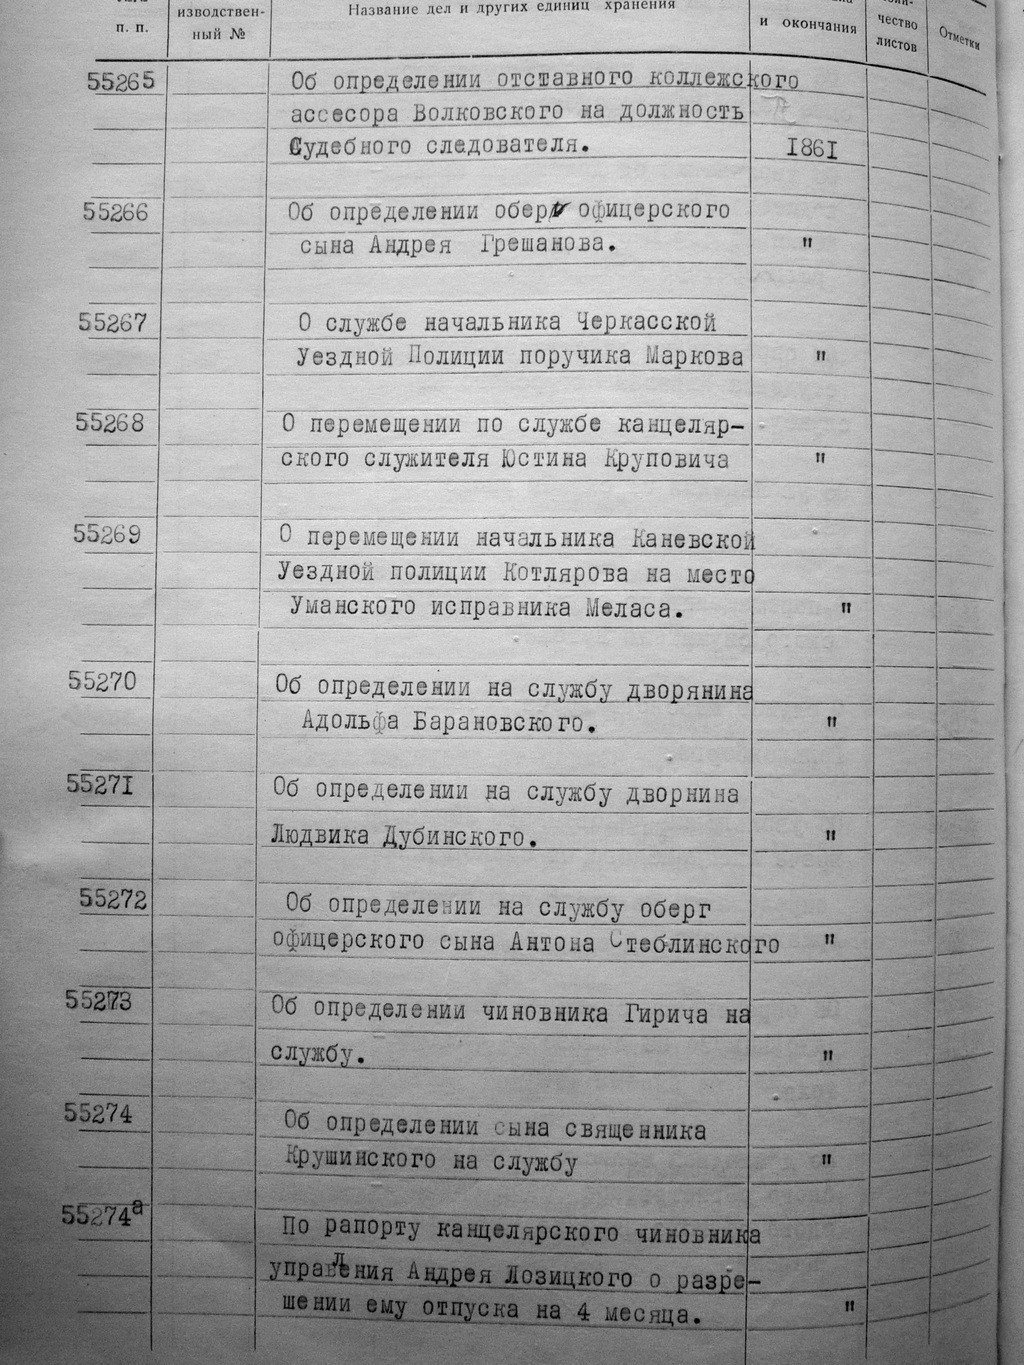 п. п.
изводствен-
ный №
Название дел и других единиц хранения
и окончания
чество
листов
Отметки
55265
Об определении отставного коллежского
ассесора Волковского на должность
Судебного следователя.
1861
55266
Об определении обер офицерского
сына Андрея Грешанова.
"
55267
О службе начальника Черкасской
Уездной Полиции поручика Маркова
"
55268
О перемещении по службе канцеляр-
ского служителя Юстина Круповича
"
55269
О перемещении начальника Каневской
Уездной полиции Котлярова на место
Уманского исправника Меласа.
"
55270
Об определении на службу дворянина
Адольфа Барановского.
"
55271
Об определении на службу дворнина
Людвика Дубинского.
"
55272
Об определении на службу оберг
офицерского сына Антона Стеблинского
"
55273
Об определении чиновника Гирича на
службу.
"
55274
Об определении сына священника
Крушинского на службу
"
55274а
По рапорту канцелярского чиновника
управления Андрея Лозицкого о разре-
шении ему отпуска на 4 месяца.
"